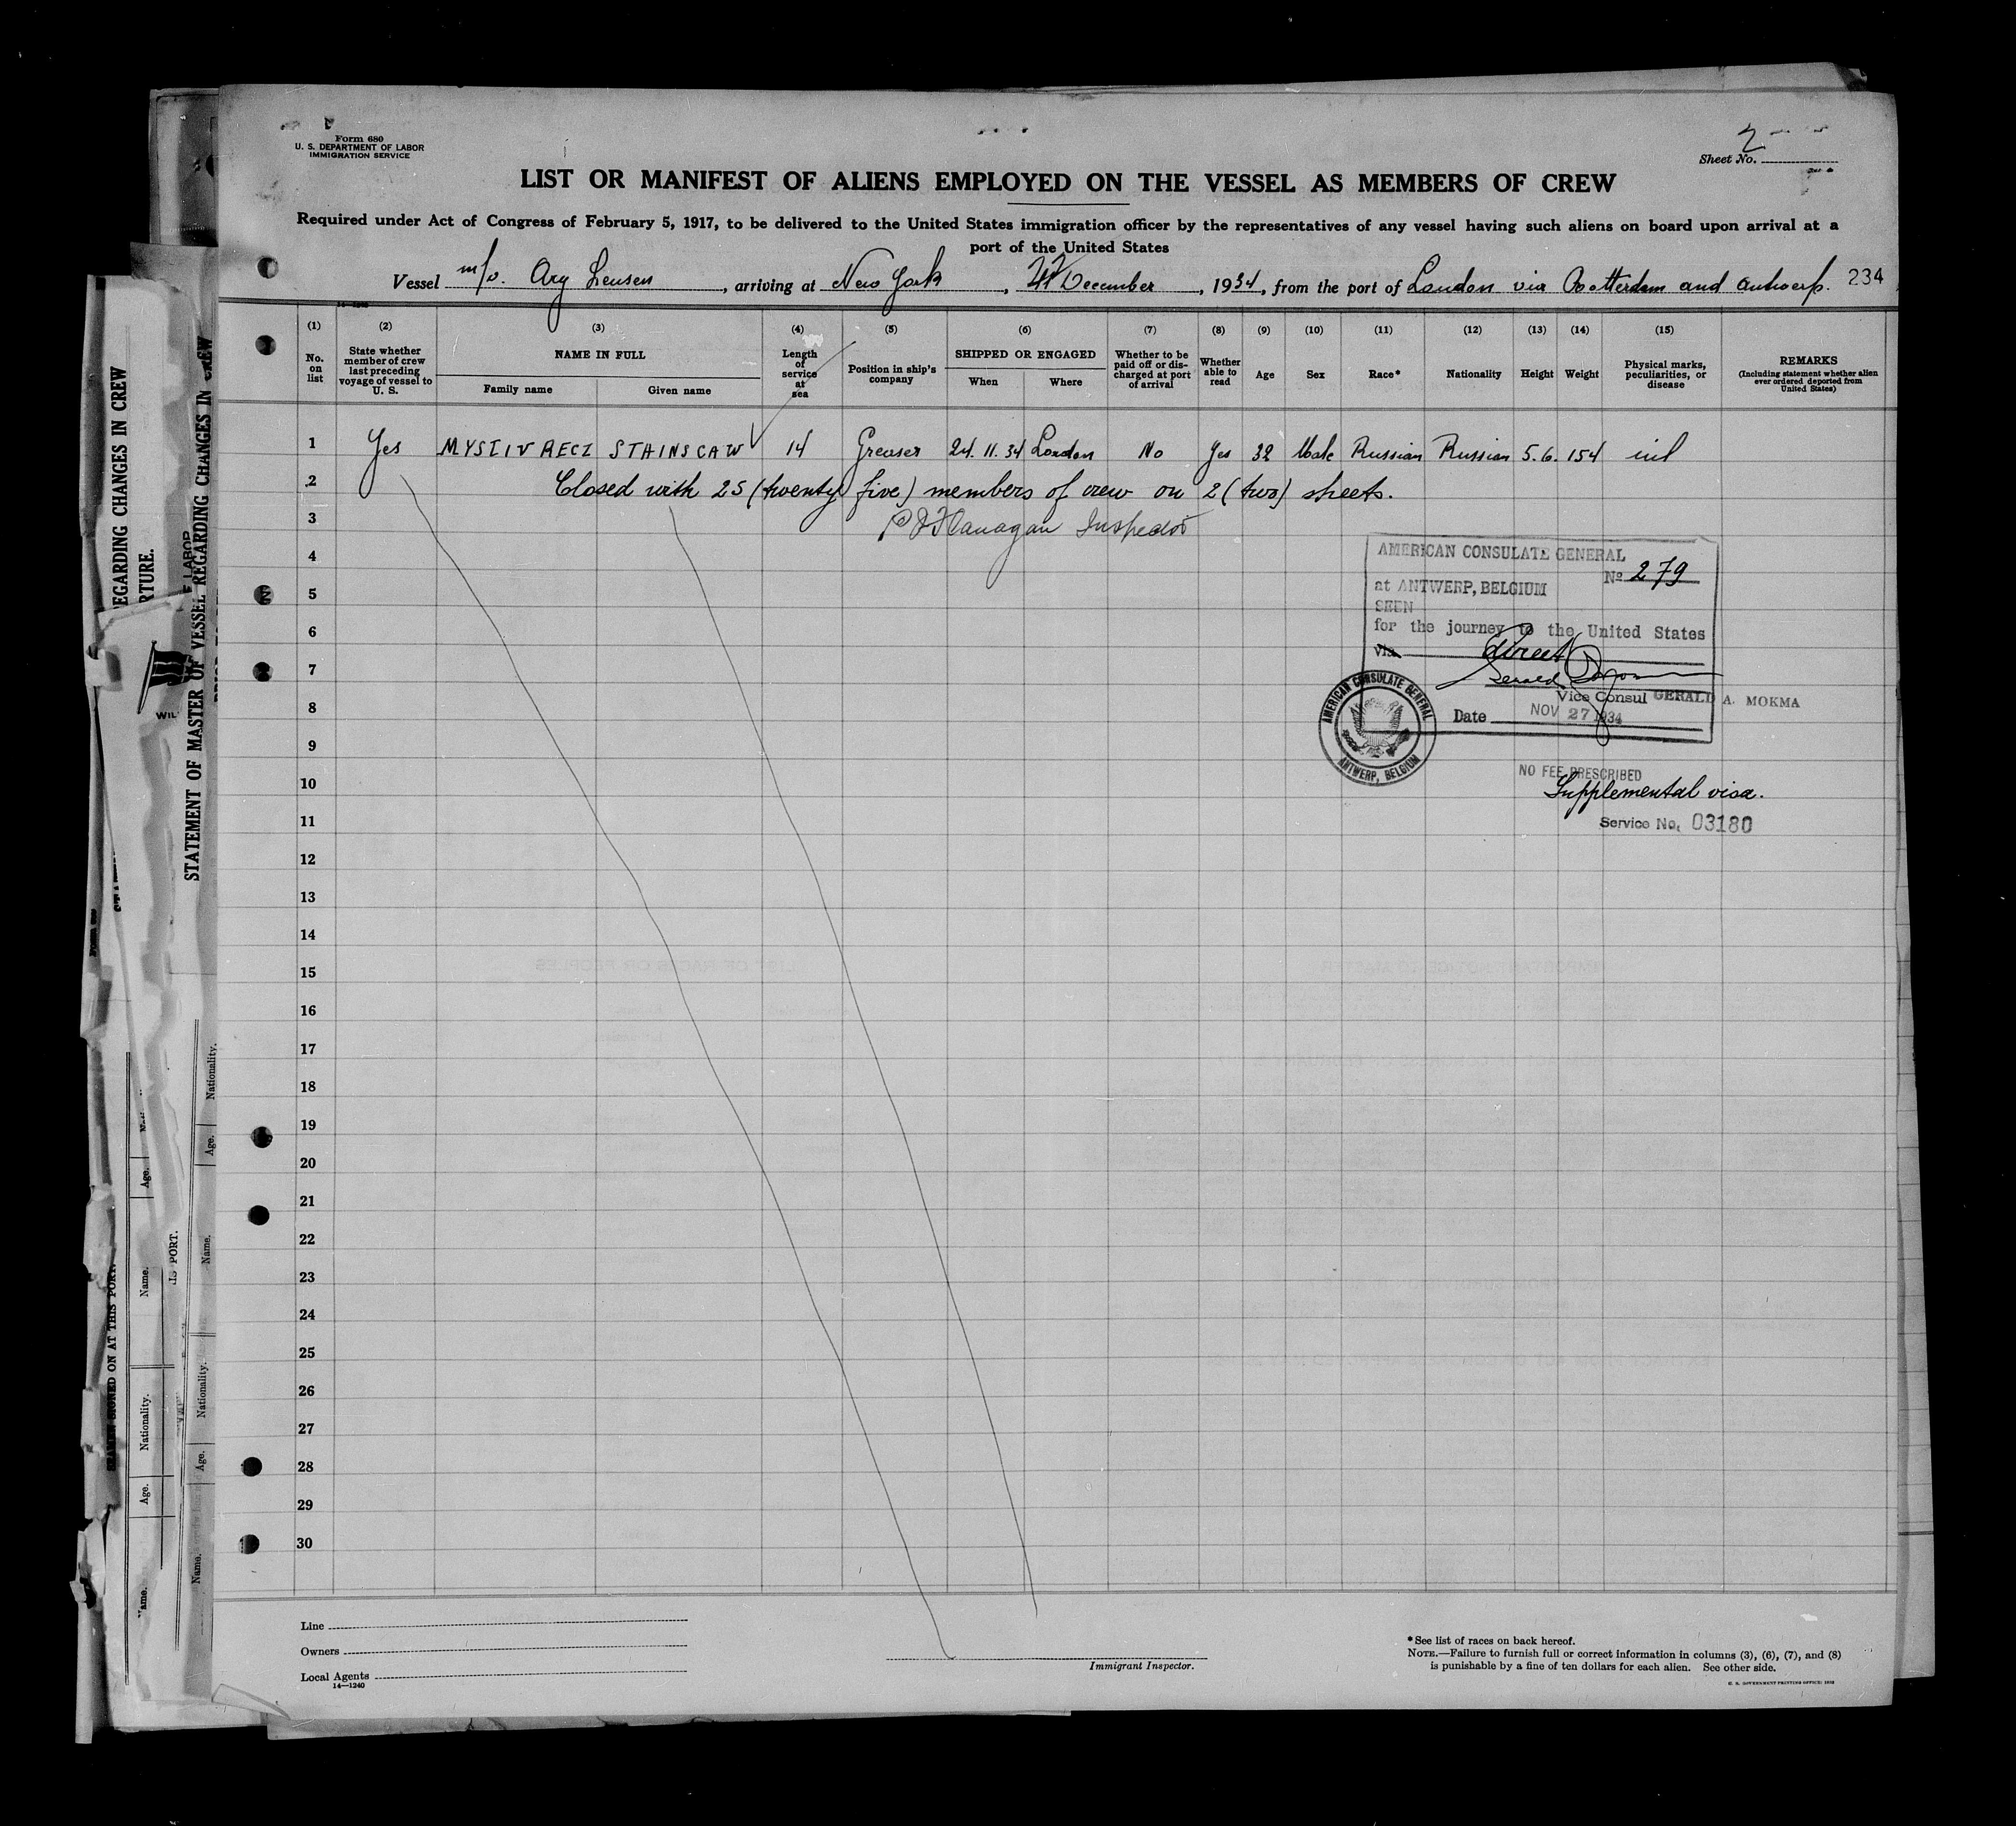 Form 680
U. S. DEPARTMENT OF LABOR
IMMIGRATION SERVICE
2
Sheet No.
LIST OR MANIFEST OF ALIENS EMPLOYED ON THE VESSEL AS MEMBERS OF CREW
Required under Act of Congress of February 5, 1917, to be delivered to the United States immigration officer by the representatives of any vessel having such aliens on board upon arrival at a
port of the United States
Vessel m/s. Ary Lensen, arriving at New York, December, 1934, from the port of London via Rotterdam and Antwerp. 234
(1) (2) (3) (4) (5) (6) (7) (8) (9) (10) (11) (12) (13) (14) (15)
No. on list
State whether member of crew last preceding voyage of vessel to U. S.
NAME IN FULL
Family name
Given name
Length of service at sea
Position in ship's company
SHIPPED OR ENGAGED
When
Where
Whether to be paid off or discharged at port of arrival
Whether able to read
Age
Sex
Race*
Nationality
Height
Weight
Physical marks, peculiarities, or disease
REMARKS
(Including statement whether alien ever ordered deported from United States)
1 Yes STAINSCAW 14 Greaser 24.11.34 London No Yes 32 Male Russian Russian 5.6. 154 nil
2 Closed with 25 (twenty five) members of crew on 2 (two) sheets.
3 Flanagan Inspector
4
5
6
7
8
9
10
11
12
13
14
15
16
17
18
19
20
21
22
23
24
25
26
27
28
29
30
AMERICAN CONSULATE GENERAL
No 279
at ANTWERP, BELGIUM
SEEN
for the journey to the United States
via direct
Vice Consul GERALD A. MOKMA
Date NOV 27 1934
AMERICAN CONSULATE GENERAL
ANTWERP, BELGIUM
NO FEE PRESCRIBED
Supplemental visa.
Service No. 03180
Line
Owners
Local Agents
14—1240
Immigrant Inspector.
*See list of races on back hereof.
NOTE.—Failure to furnish full or correct information in columns (3), (6), (7), and (8)
is punishable by a fine of ten dollars for each alien. See other side.
STATEMENT OF MASTER OF VESSEL REGARDING CHANGES IN CREW
EGARDING CHANGES IN CREW
RTURE.
SEAMEN SIGNED ON AT THIS PORT.
Name.
Age.
Nationality.
Name.
Age.
Nationality.